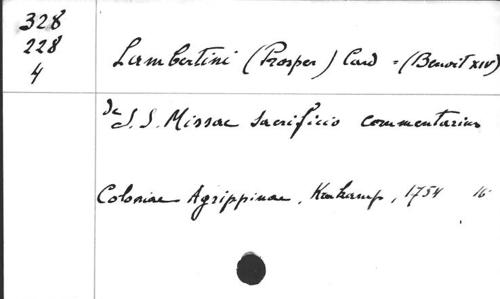 328
228
4
Lambertini (Prosper) Card = (Benoit XIV)
de S. S. Missae sacrificio commentarius
Coloniae Agrippinae, , 1754 16